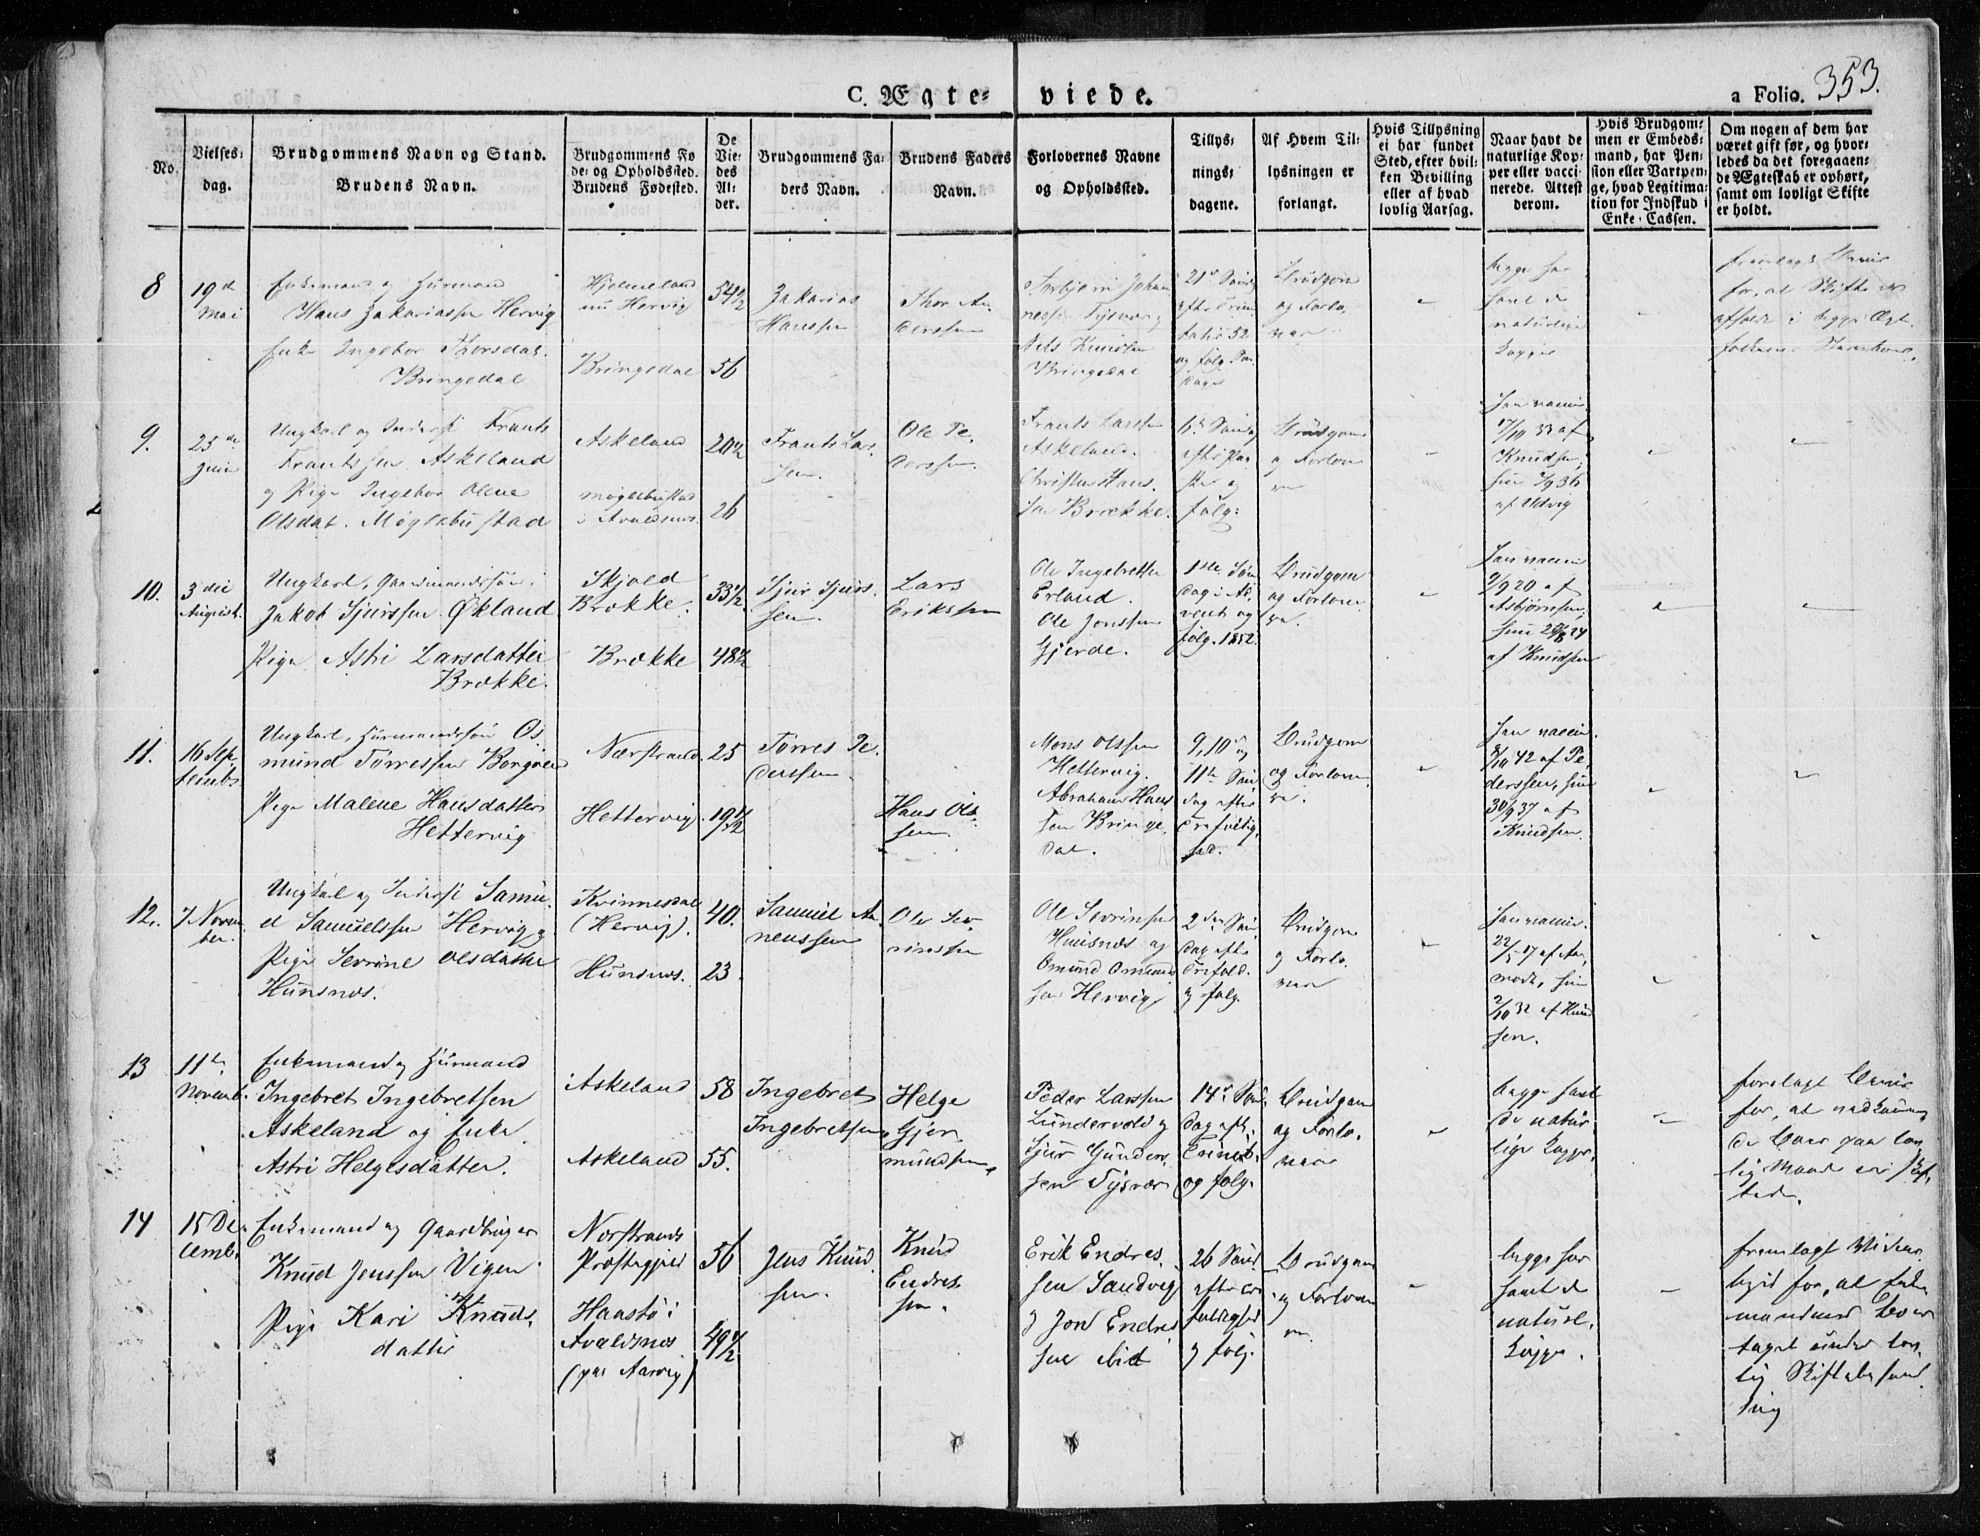 C. Ægte= viede.
a Folio. 353.
No.
Vielses-
dag.
Brudgommens Navn og Stand.
Brudens Navn.
Brudgommens Fø
de- og Opholdssted.
Brudens Fødested.
De
Vie-
des
Al-
der.
Brudgommens Fa-
ders Navn.
Brudens Faders
Navn.
Forlovernes Navne
og Opholdssted.
Tillys-
nings-
dagene.
Af Hvem Til-
lysningen er
forlangt.
Hvis Tillysning
ei har fundet
Sted, efter hvil-
ken Bevilling
eller af hvad
lovlig Aarsag.
Naar havt de
naturlige Kop-
per eller vacci-
nerede. Attest
derom.
Hvis Brudgom-
men er Embeds-
mand, har Pen-
sion eller Vartpen-
ge, hvad Legitima-
tion for Indskud i
Enke-Cassen.
Om nogen af dem har
været gift før, og hvor-
ledes da det foregaaen-
de Ægteskab er ophørt,
samt om lovligt Skifte
er holdt.
8
19de
Mai
Enkemand og Huusmand
Hans Zakariassen Hervig
Enke Ingebor Thorsdat.
Bringedal
Hjelmeland
nu Hervig
Bringedal
54½
56
Zakarias
Hanssen
Thor An-
derssen
Torbjørn Johan
nessen Tysvær
Nels Knudsen
Bringedal
21de Sønd
efter Trini
tatis 52
og følg. Søn
dage
Brudgom
og Forlo-
ver
begge har
havt de
naturlige
Kopper
9.
25de
Juni
Ungkarl og Inderst Frants
Frantssen Askeland
og Pige Ingebor Olene
Olsdat. Møglebustad
Askeland
Møglebustad
i Avaldsnes.
20½
26
Frants Lar-
sen.
Ole Pe-
derssen.
Frants Larssen
Askeland.
Christen Hans-
sen Brække.
6te Sønd
efter Paa
ske og
følg:
Brudgom
og Forlove
re
Han vaccin.
17/10 33 af
Knudsen,
hun 2/9 36
af Udvig
10.
3die
August.
Ungkarl, Gaardmandssøn
Jakob Sjurssen Økland
Pige Astri Larsdatter
Brække.
Skjold
Brække.
Brække
33½
48½
Sjur Sjurs-
sen.
Lars
Erikssen
Ole Ingebretsen
Erland.
Ole Jonssen
Gjerde.
1ste Søn
dag i Ad-
vent og
følg. 1852.
Brudgom
og Forlove
re.
Han vaccin
2/9 20 af
Asbjørnsen,
hun 20/8 24
af Knudsen
11.
16 Sep-
tembr.
Ungkarl, Huusmandssøn Os-
mund Tørressen Borgøen
Pige Malene Hansdatter
Hettervig
Nærstrand
Hettervig
25
19½
Tørres Pe-
derssen.
Hans Ols-
sen.
Mons Olssen
Hettervig.
Abraham Hans
sen Bringe-
dal.
9, 10de og
11te Søn-
dag efter
Trefoldig-
hed.
Brudgom
og Forlove
re.
Han vaccin.
8/10 42 af Pe-
derssen, hun
30/9 37 af
Knudsen.
12.
7 Novem
ber.
Ungkarl og Inderst Samu-
el Samuelssen Hervig og
Pige Sevrine Olsdatter
Hunsnes.
Kvinnesdal
(Hervig).
Hunsnes.
40.
23.
Samuel An
nenssen
Ole Se-
vrinssen
Ole Sevrinsen
Hunsnæs og
Omund Omunds
sen Hervig
2den Søn-
dag efter
Trefold.
og følg.
Brudgom
og Forlo-
ver
Han vaccin.
22/5 17 af Aa
rnodt, hun
2/10 32 af Knud
sen.
13
11te
Novemb.
Enkemand og Huusmand
Ingebret Ingebretsen
Askeland og Enke
Astri Helgesdatter.
Askeland
Askeland
58
55.
Ingebret
Ingebretsen
Helge
Gjer-
mundsen.
Peder Larssen
Lundervold og
Sjur Gunders-
sen Tysvær
14de Søn-
dag eft.
Trinit.
og følg.
Brudgom
og Forlo-
ver
begge havt
de natur-
lige Kopper.
forelagt Beviis
for, at vedkommen
de Boer paa lov-
lig Maade er skif-
tede.
14
15 De-
cemb.
Enkemand og Gaardbruger
Knud Jenssen Vigen
Pige Kari Knuds-
datter
Norstrands
Præstegjæld
Haastø i
Avaldsnes
(paa Aarvig)
56
49½
Jens Knud-
sen.
Knud
Endres-
sen.
Erik Endres-
sen Sandvig
og Jon Endres
sen ibid
26 Sønd
efter Tre
foldighed
og følg.
Brudgom
og Forlove
re.
begge har
havt de
naturl.
Kopper.
fremlagt Vidnes-
byrd for, at Enke-
mandens Bo er
taget under lov-
lig Skiftebehand
ling